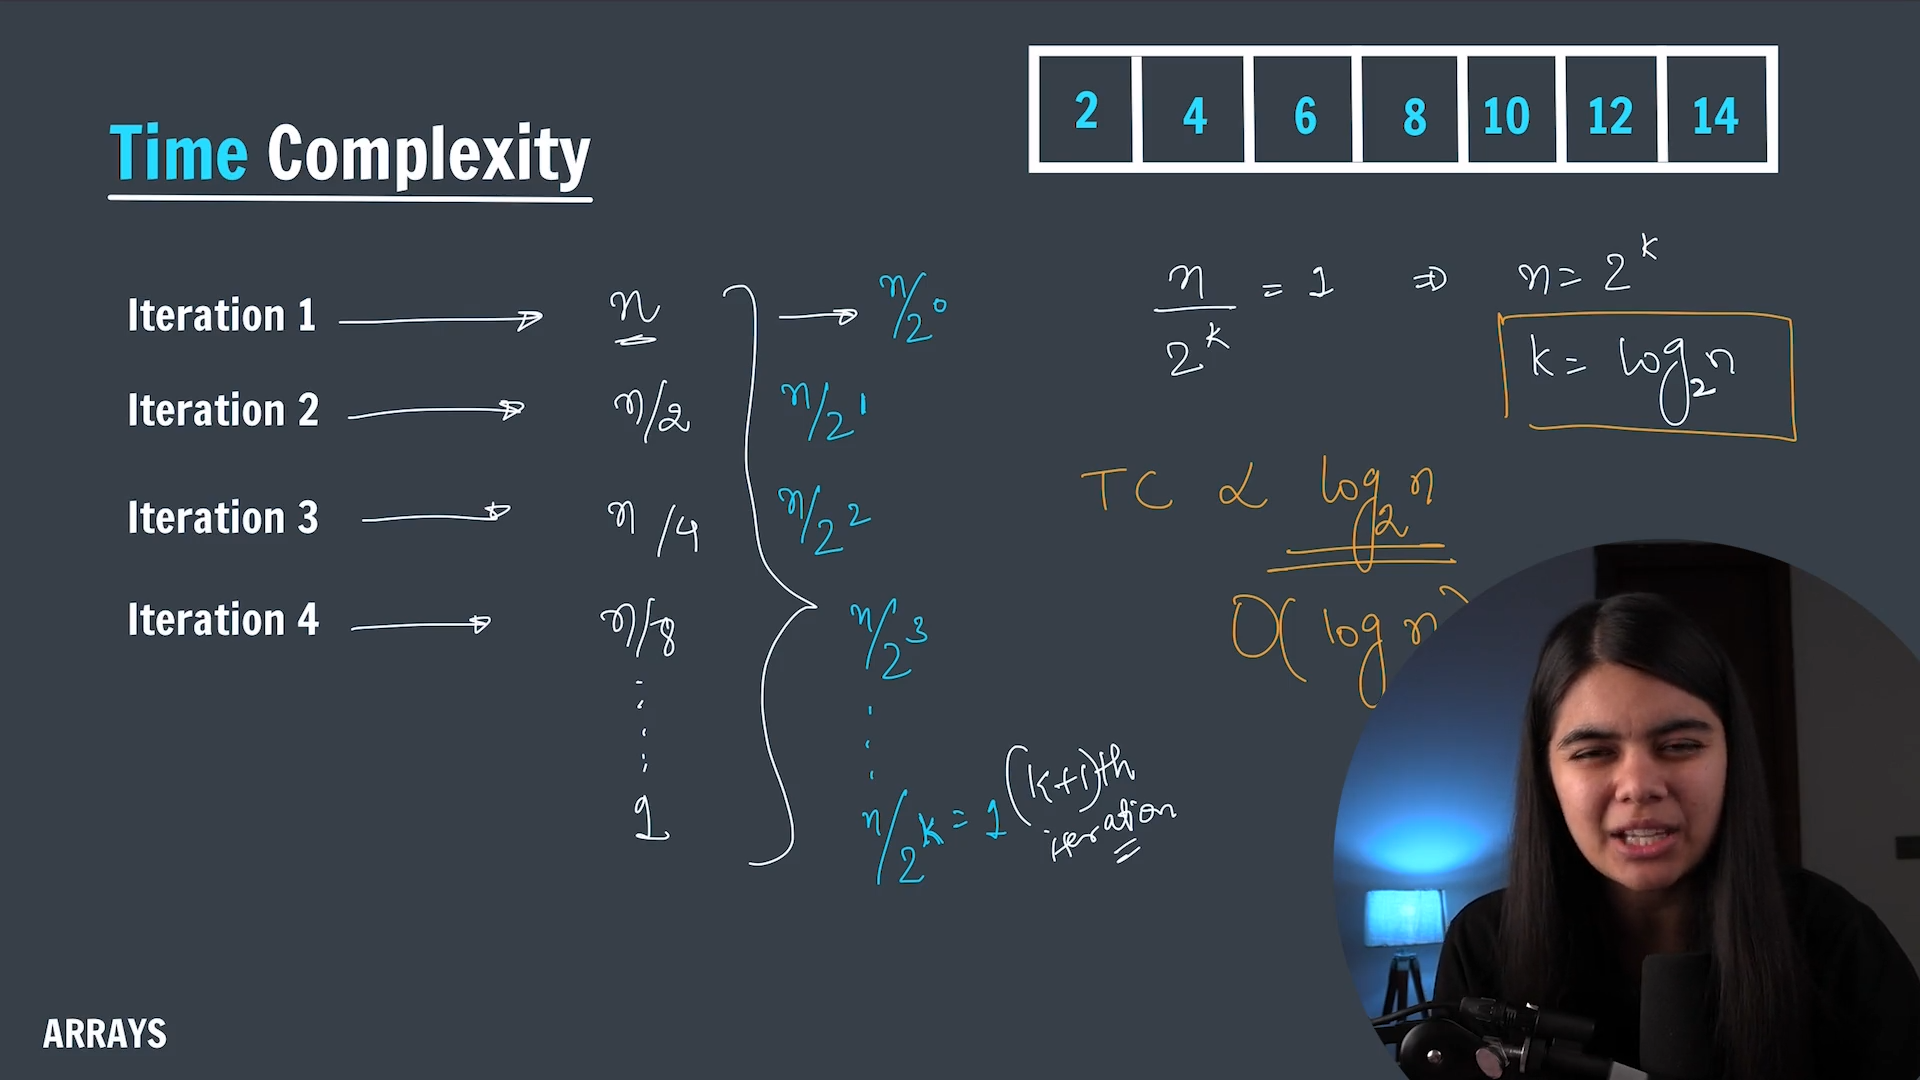 Time Complexity
2 4 6 8 10 12 14
Iteration 1 n n/2⁰
Iteration 2 n/2 n/2¹
Iteration 3 n/4 n/2²
Iteration 4 n/8 n/2³
1 n/2ᵏ = 1 (k+1)th
iteration
n/2ᵏ = 1 ⇒ n = 2ᵏ
k = log₂n
TC ∝ log₂n
O(log n)
ARRAYS